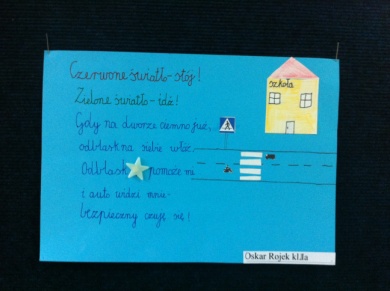 Czerwone światło - stój!
Zielone światło - idź!
Gdy na dworze ciemno już,
odblask na siebie włóż.
Odblask pomoże mi
i auto widzi mnie -
bezpieczny czuję się!
szkoła
Oskar Rojek kl.IIa